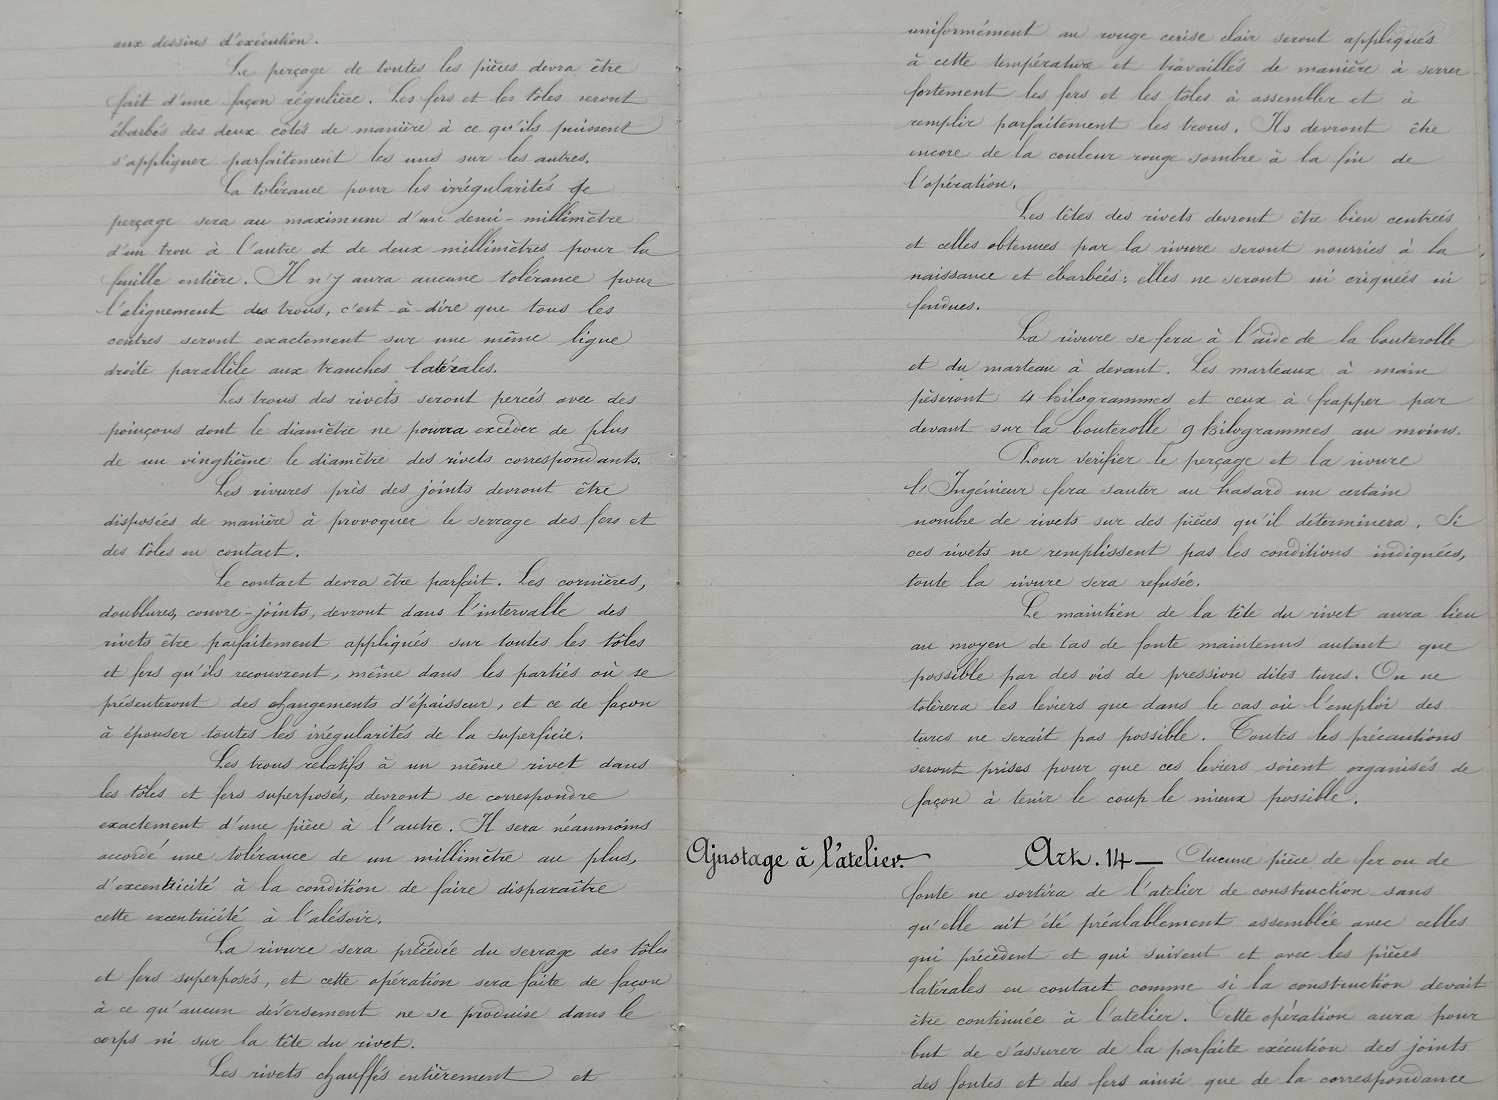 aux dessins d'exécution.
Le perçage de toutes les pièces devra être
fait d'une façon régulière. Les fers et les tôles seront
ébarbés des deux côtés de manière à ce qu'ils puissent
s'appliquer parfaitement les uns sur les autres.
La tolérance pour les irrégularités de
perçage sera au maximum d'un demi-millimètre
d'un trou à l'autre et de deux millimètres pour la
feuille entière. Il n'y aura aucune tolérance pour
l'alignement des trous, c'est-à-dire que tous les
centres seront exactement sur une même ligne
droite parallèle aux tranches latérales.
Les trous des rivets seront percés avec des
poinçons dont le diamètre ne pourra excéder de plus
de un vingtième le diamètre des rivets correspondants.
Les rivures près des joints devront être
disposées de manière à provoquer le serrage des fers et
des tôles en contact.
Le contact devra être parfait. Les cornières,
doublures, couvre-joints, devront dans l'intervalle des
rivets être parfaitement appliqués sur toutes les tôles
et fers qu'ils recouvrent, même dans les parties où se
présenteront des changements d'épaisseur, et ce de façon
à épouser toutes les irrégularités de la superficie.
Les trous relatifs à un même rivet dans
les tôles et fers superposés, devront se correspondre
exactement d'une pièce à l'autre. Il sera néanmoins
accordé une tolérance de un millimètre au plus,
d'excentricité à la condition de faire disparaître
cette excentricité à l'alésoir.
La rivure sera précédée du serrage des tôles
et fers superposés, et cette opération sera faite de façon
à ce qu'aucun déversement ne se produise dans le
corps ni sur la tête du rivet.
Les rivets chauffés entièrement et
uniformément au rouge cerise clair seront appliqués
à cette température et travaillés de manière à serrer
fortement les fers et les tôles à assembler et à
remplir parfaitement les trous. Ils devront être
encore de la couleur rouge sombre à la fin de
l'opération.
Les têtes des rivets devront être bien centrées
et celles obtenues par la rivure seront nourries à la
naissance et ébarbées: elles ne seront ni criquées ni
fendues.
La rivure se fera à l'aide de la bouterolle
et du marteau à devant. Les marteaux à main
pèseront 4 kilogrammes et ceux à frapper par
devant sur la bouterolle 9 kilogrammes au moins.
Pour vérifier le perçage et la rivure
l'Ingénieur fera sauter au hasard un certain
nombre de rivets sur des pièces qu'il déterminera. Si
ces rivets ne remplissent pas les conditions indiquées,
toute la rivure sera refusée.
Le maintien de la tête du rivet aura lieu
au moyen de tas de fonte maintenus autant que
possible par des vis de pression dites turcs. On ne
tolèrera les leviers que dans le cas où l'emploi des
turcs ne serait pas possible. Toutes les précautions
seront prises pour que ces leviers soient organisés de
façon à tenir le coup le mieux possible.
Ajustage à l'atelier.— Art. 14— Aucune pièce de fer ou de
fonte ne sortira de l'atelier de construction sans
qu'elle ait été préalablement assemblée avec celles
qui précèdent et qui suivent et avec les pièces
latérales en contact comme si la construction devait
être continuée à l'atelier. Cette opération aura pour
but de s'assurer de la parfaite exécution des joints
des fontes et des fers ainsi que de la correspondance